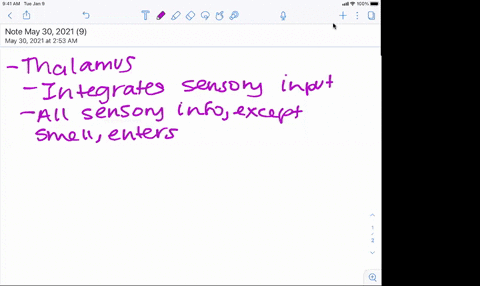 9:41 AM Tue Jan 9
100%
T
Note May 30, 2021 (9)
May 30, 2021 at 2:53 AM
- Thalamus
- Integrates sensory input
- All sensory info, except
smell, enters
1
2